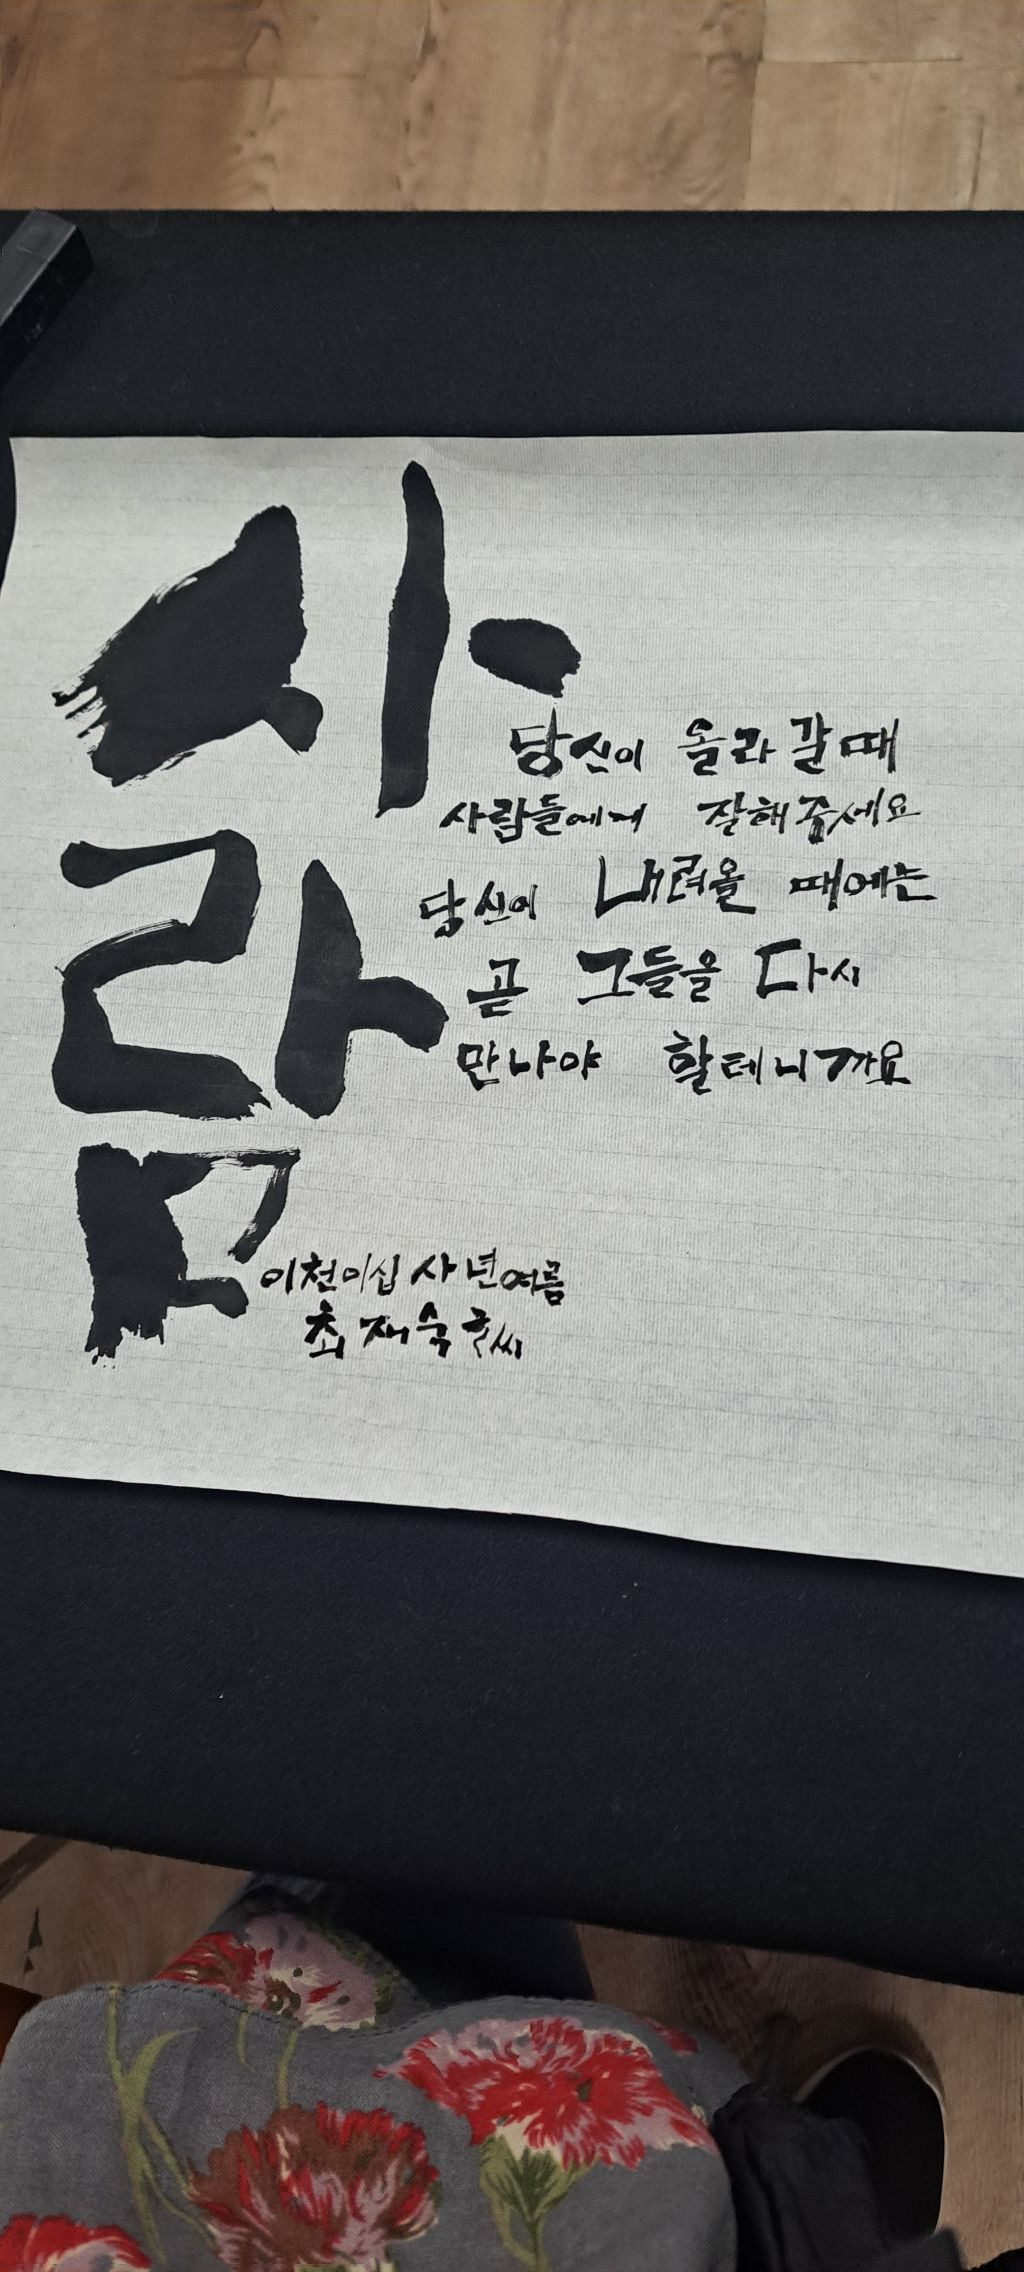 사람
당신이 올라갈때
사람들에게 잘해주세요
당신이 내려올 때에는
곧 그들을 다시
만나야 할테니까요
이천이십사년여름
최재숙글씨